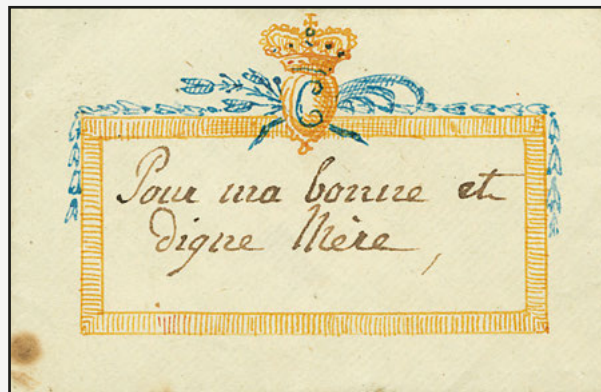 C
Pour ma bonne et
digne Mère,